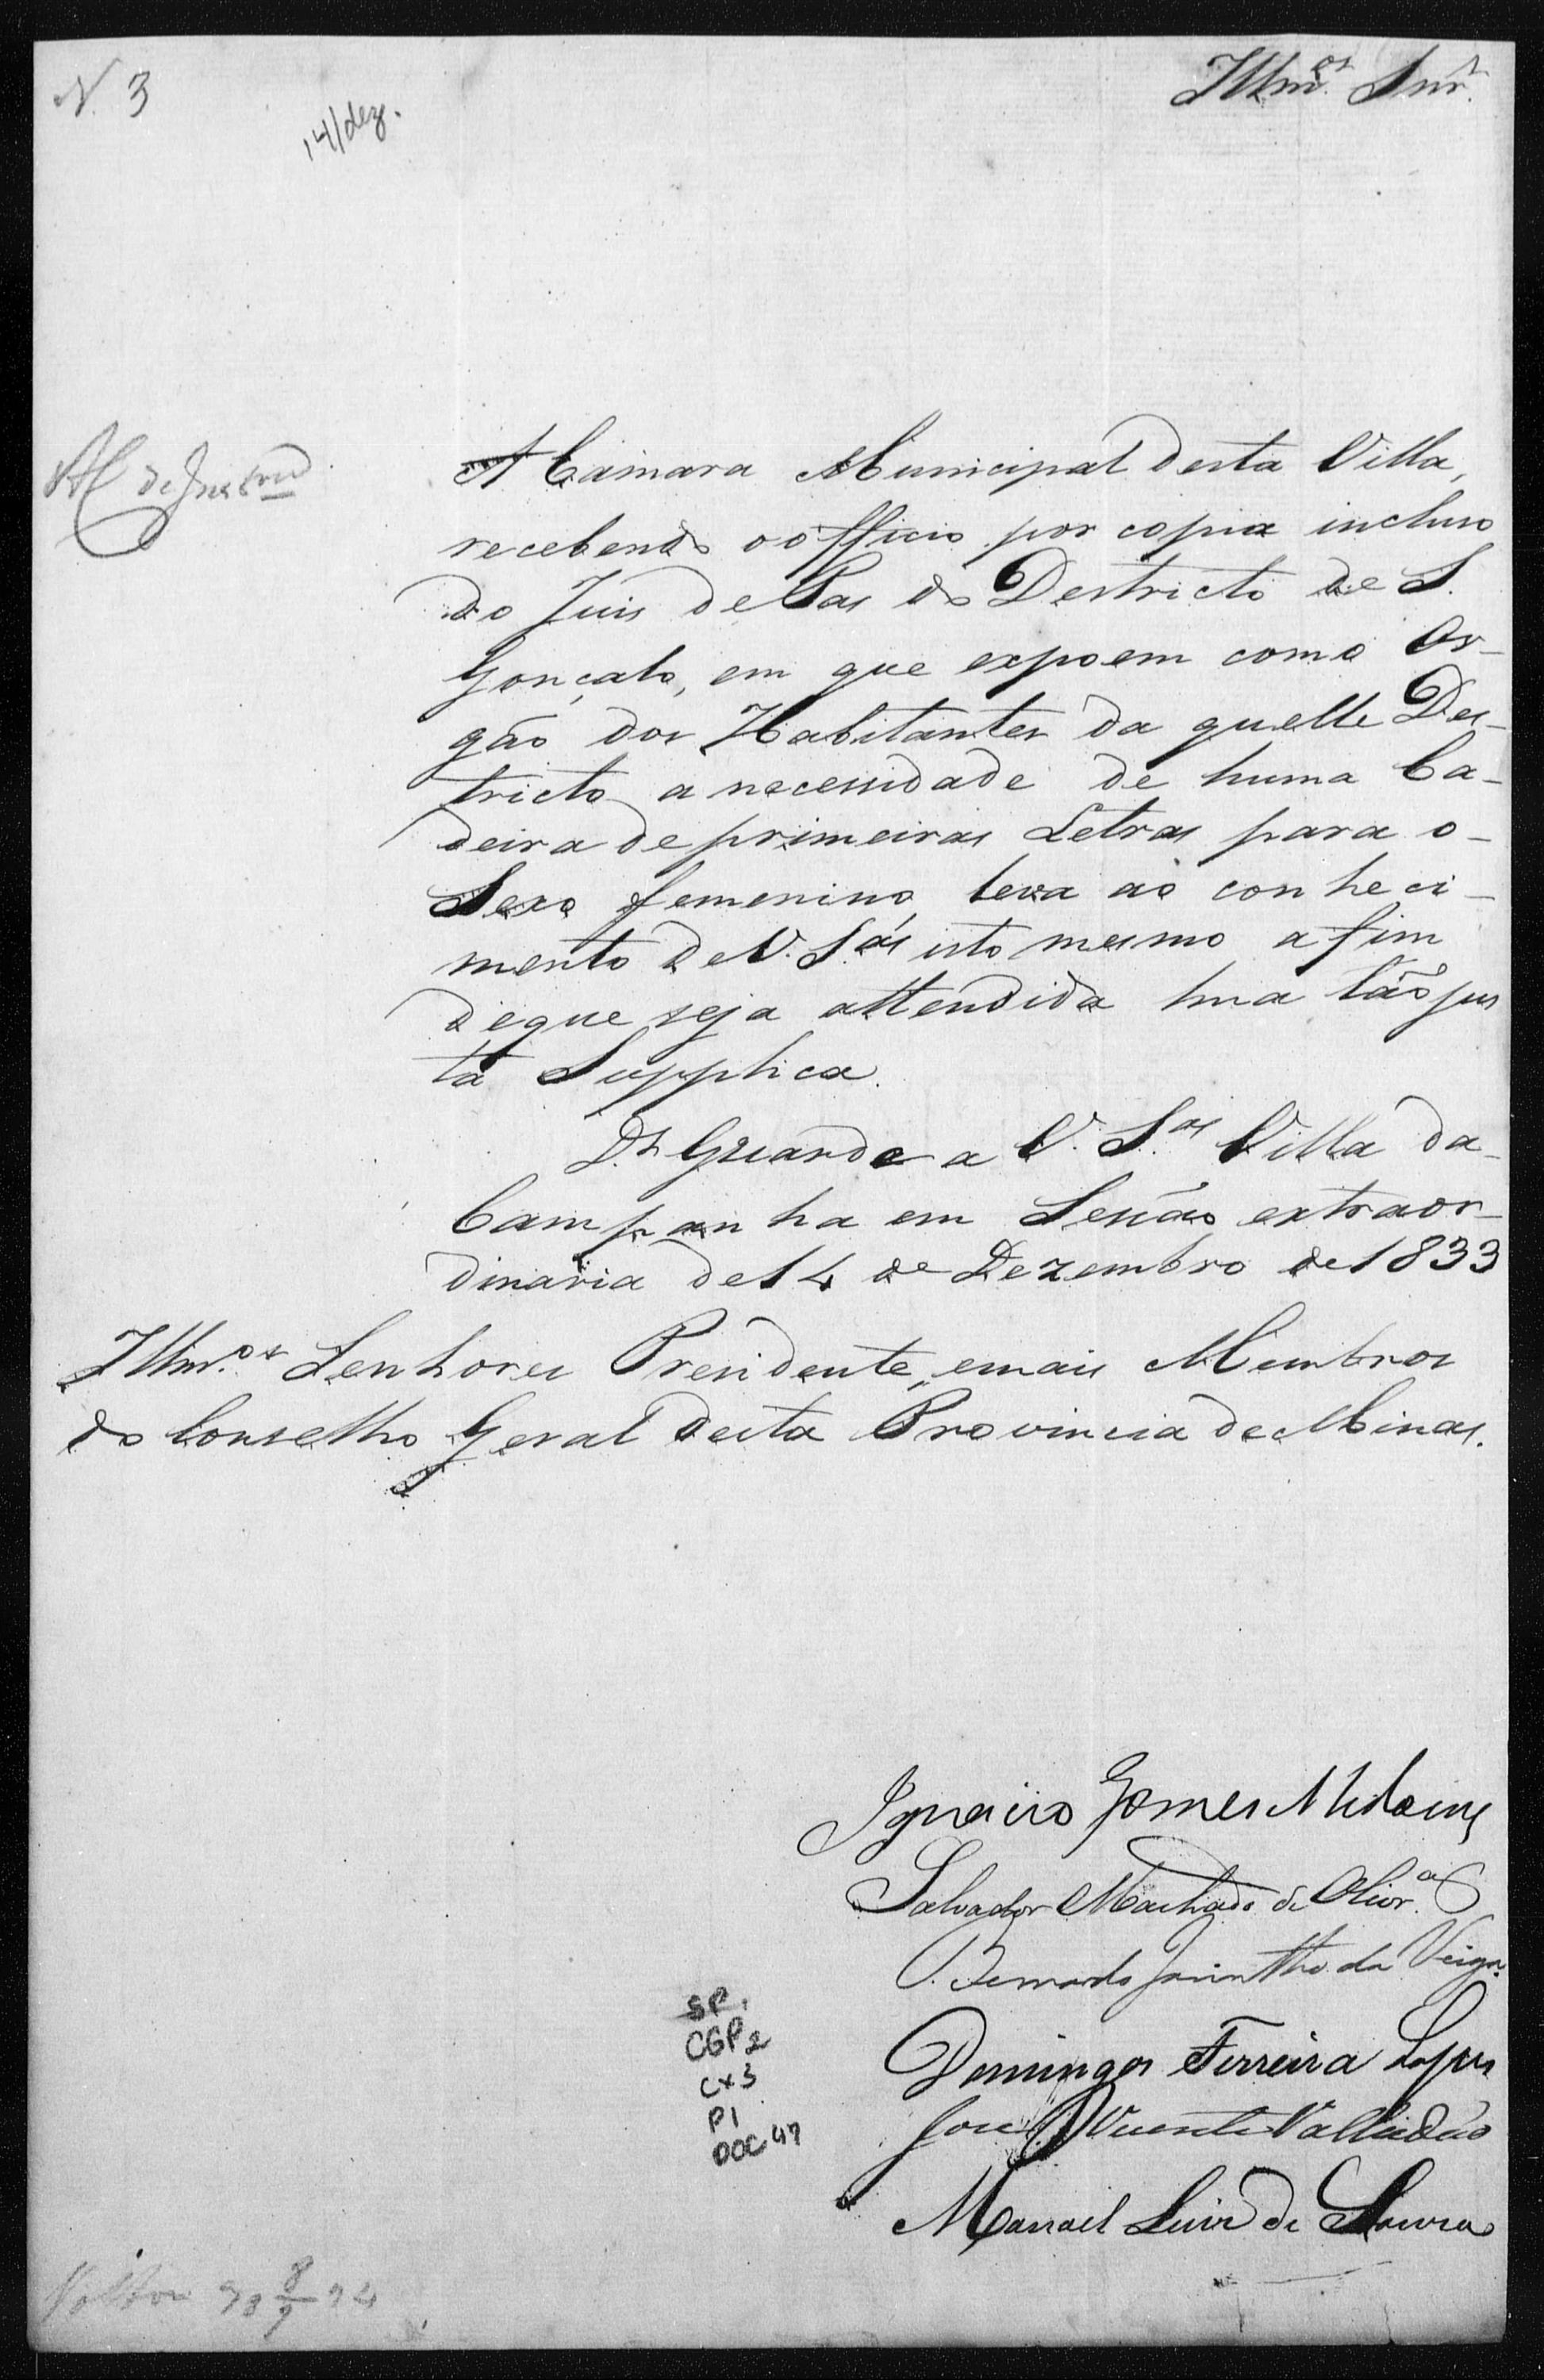 N. 3
14/dez.
Illm.os Snr.s
A Camara Municipal desta Villa,
recebendo o officio por copia incluso
do Juis de Pas do Destricto de S.
Gonçalo, em que expoem como Or-
gão dos Habitantes da quelle Des-
tricto a necessidade de huma Ca-
deira de primeiras Letras para o-
Sexo femenino, leva ao conheci-
mento de V. S.as isto mesmo a fim
de que seja attendida hua tão jus
ta Supplica.
D.s Guarde a V. S.as Villa da-
Campanha em Sessão extraor-
dinaria de 14 de Dezembro de 1833
Illm.os Senhores Presidente, e mais Membros
do Conselho Geral desta Provincia de Minas.
Ignacio Gomes Midoens
Salvador Machado de Olivr.a
Bernardo Jacintho da Veiga
Domingos Ferreira Lopes
José Vicente Valladão
Manoel Luis de Souza
SP.
CGP2
CX3
P1
DOC 47